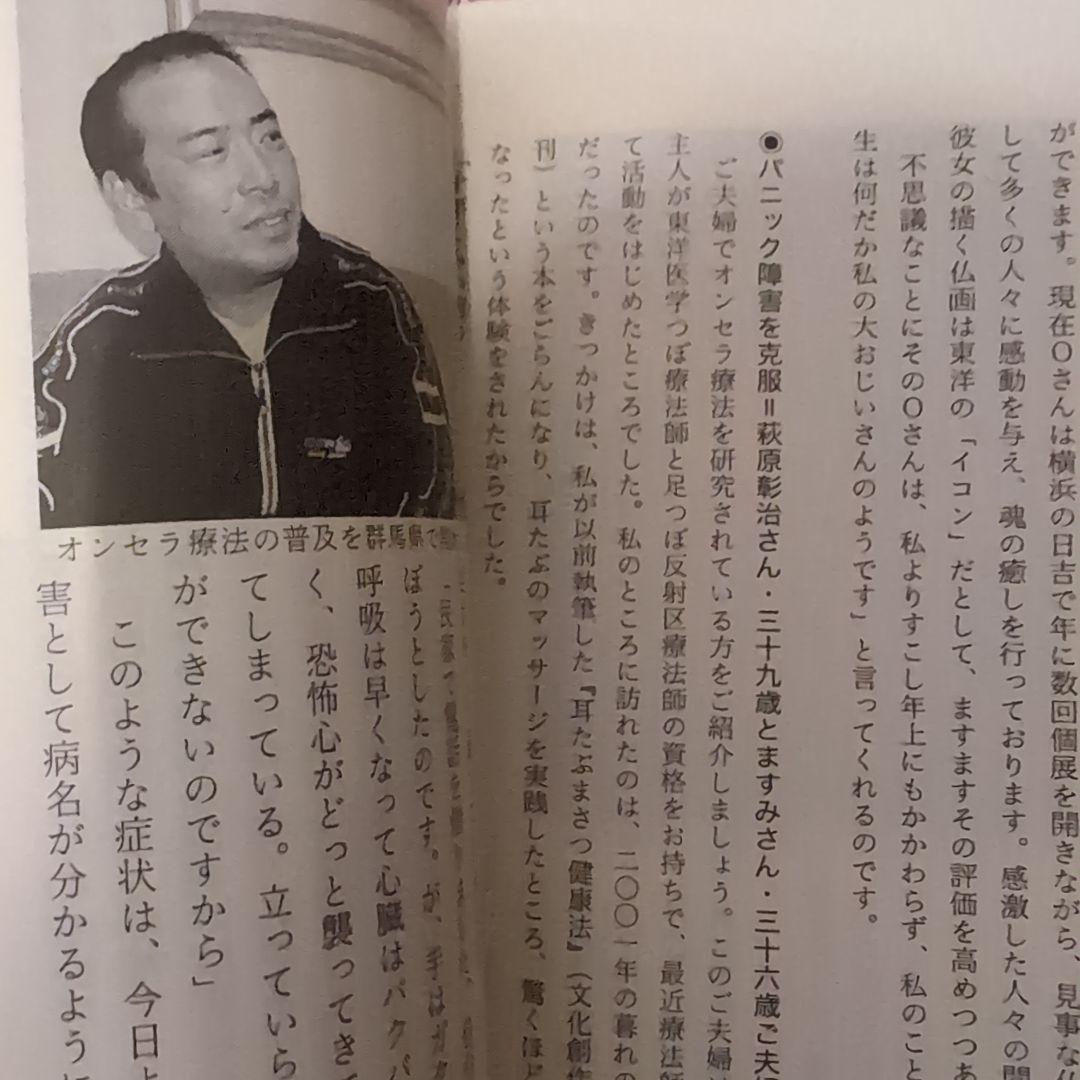 ができます。現在Oさんは横浜の日吉で年に数回個展を開きながら、見事な
して多くの人々に感動を与え、魂の癒しを行っております。感激した人々の
彼女の描く仏画は東洋の「イコン」だとして、ますますその評価を高めつつあ
不思議なことにそのOさんは、私よりすこし年上にもかかわらず、私のこと
生は何だか私の大おじいさんのようです」と言ってくれるのです。
◉パニック障害を克服＝萩原彰治さん・三十九歳とますみさん・三十六歳ご夫
ご夫婦でオンセラ療法を研究されている方をご紹介しましょう。このご夫婦
主人が東洋医学つぼ療法師と足つぼ反射区療法師の資格をお持ちで、最近療法師
て活動をはじめたところでした。私のところに訪れたのは、二〇〇一年の暮れの
だったのです。きっかけは、私が以前執筆した『耳たぶまさつ健康法』（文化創作
刊）という本をごらんになり、耳たぶのマッサージを実践したところ、驚くほど
なったという体験をされたからでした。
オンセラ療法の普及を群馬県で
ぼうとしたのです。が、手は
呼吸は早くなって心臓はバクバ
く、恐怖心がどっと襲ってき
てしまっている。立っていら
ができないのですから」
このような症状は、今日
害として病名が分かるように